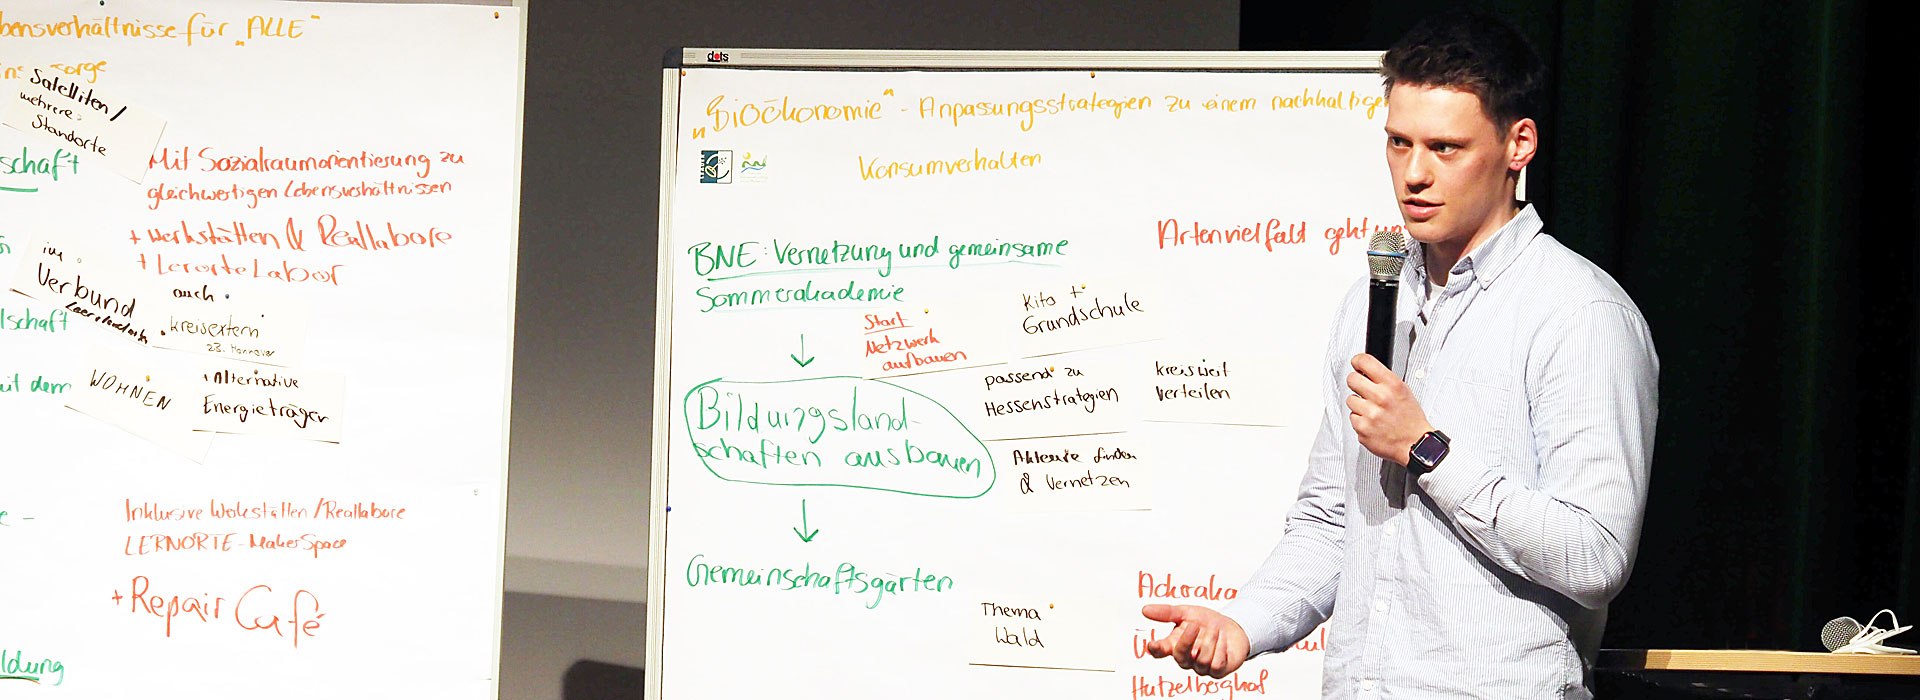 bensverhältnisse für „ALLE"
sorge
Satelliten/
mehrere
Standorte
schaft
Mit Sozialraumorientierung zu
gleichwertigen Lebensverhältnissen
+ Werkstätten & Reallabore
+ LernorteLabor
im
Verbund
auch
kreisextern
z.B. Hannover
lschaft
mit dem
WOHNEN
Alternative
Energieträger
Inklusive Werkstätten/Reallabore
LERNORTE-MakerSpace
+ Repair Café
ldung
dots
„Bioökonomie" - Anpassungsstrategien zu einem nachhaltigen
Konsumverhalten
Artenvielfalt geht uns
BNE: Vernetzung und gemeinsame
Sommerakademie
Start
Netzwerk
aufbauen
Kita +
Grundschule
passend zu
Hessenstrategien
kreisweit
verteilen
Bildungsland-
schaften ausbauen
Akteure finden
& Vernetzen
Gemeinschaftsgärten
Thema
Wald
Hutzelberghof